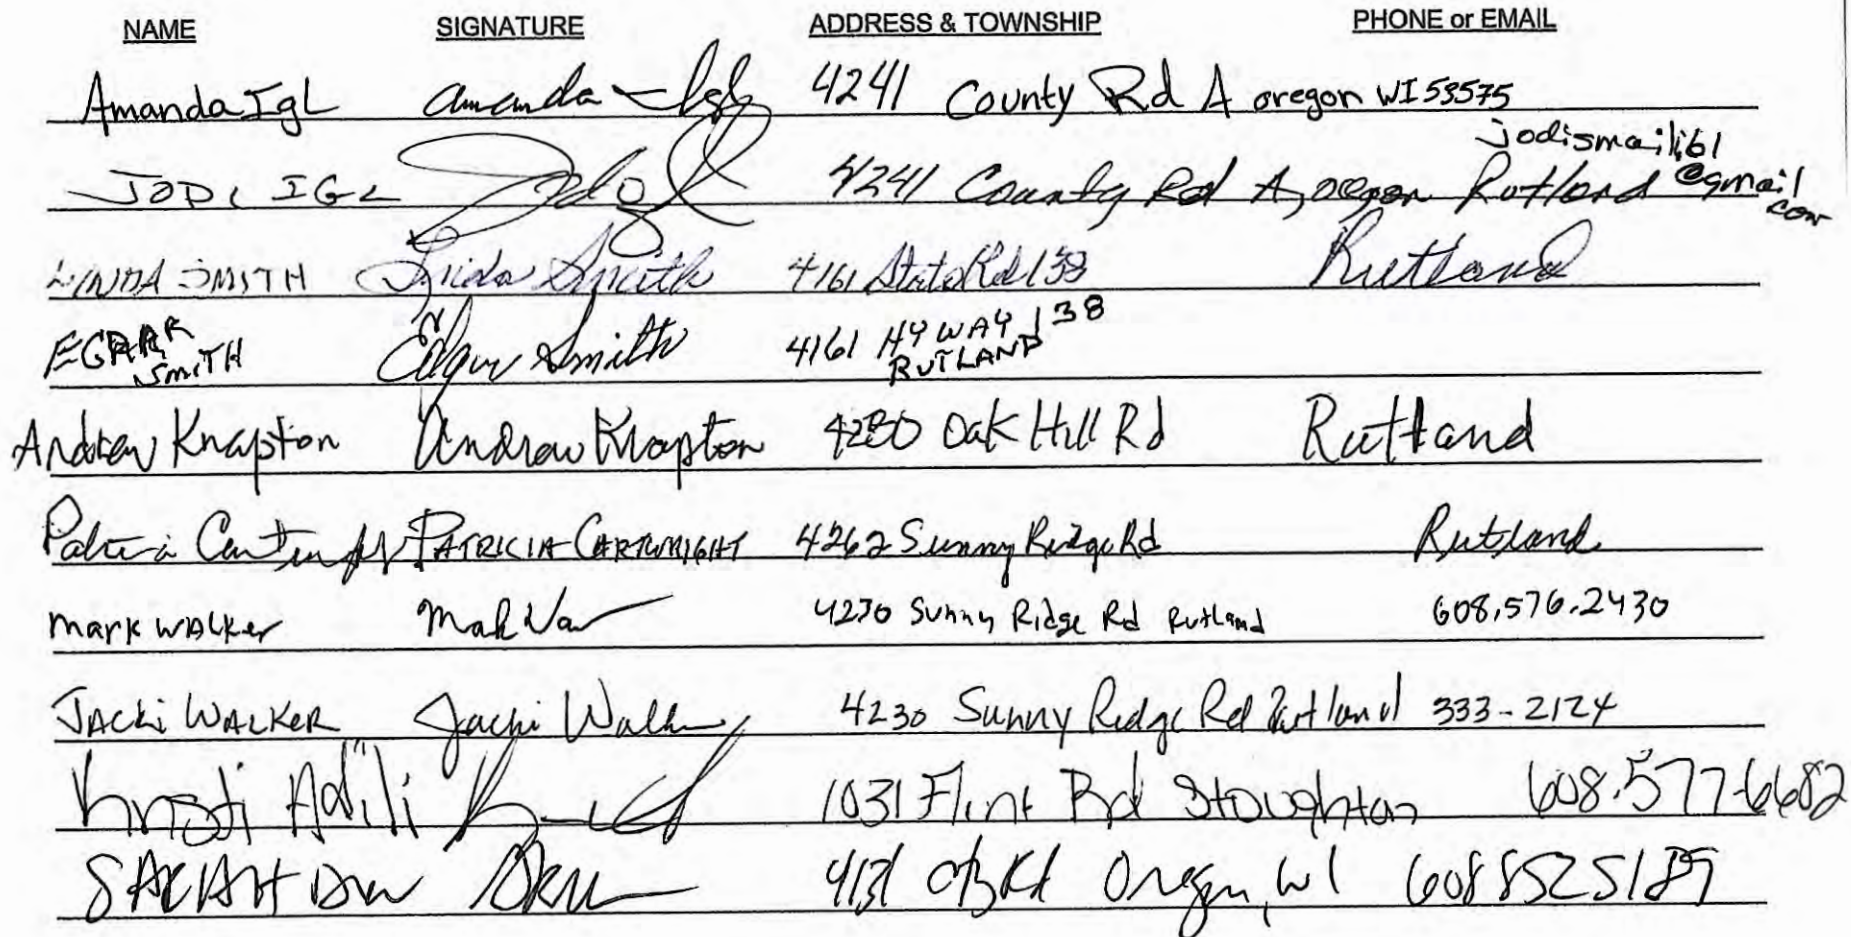 NAME SIGNATURE ADDRESS & TOWNSHIP PHONE or EMAIL
Amanda IgL Amanda Igl 4241 County Rd A oregon WI 53575
JODI IGL 4241 County Rd A, oregon Rutland jodismaili61
@gmail
.com
LINDA SMITH Linda Smith 4161 State Rd 138 Rutland
EGDAR Edgar Smith 4161 HYWAY 138
SMITH RUTLAND
Andrew Knapton Andrew Knapton 4280 Oak Hill Rd Rutland
Patricia Cartwright PATRICIA CARTWRIGHT 4262 Sunny Ridge Rd Rutland
Mark Walker 4230 Sunny Ridge Rd Rutland 608.576.2430
JACKi WALKER Jacki Walker 4230 Sunny Ridge Rd Rutland 333-2124
Kristi Adili 1031 Flint Rd Stoughton 608.577-6682
SARAH 4131 Rd Oregon, WI 608 852 5189